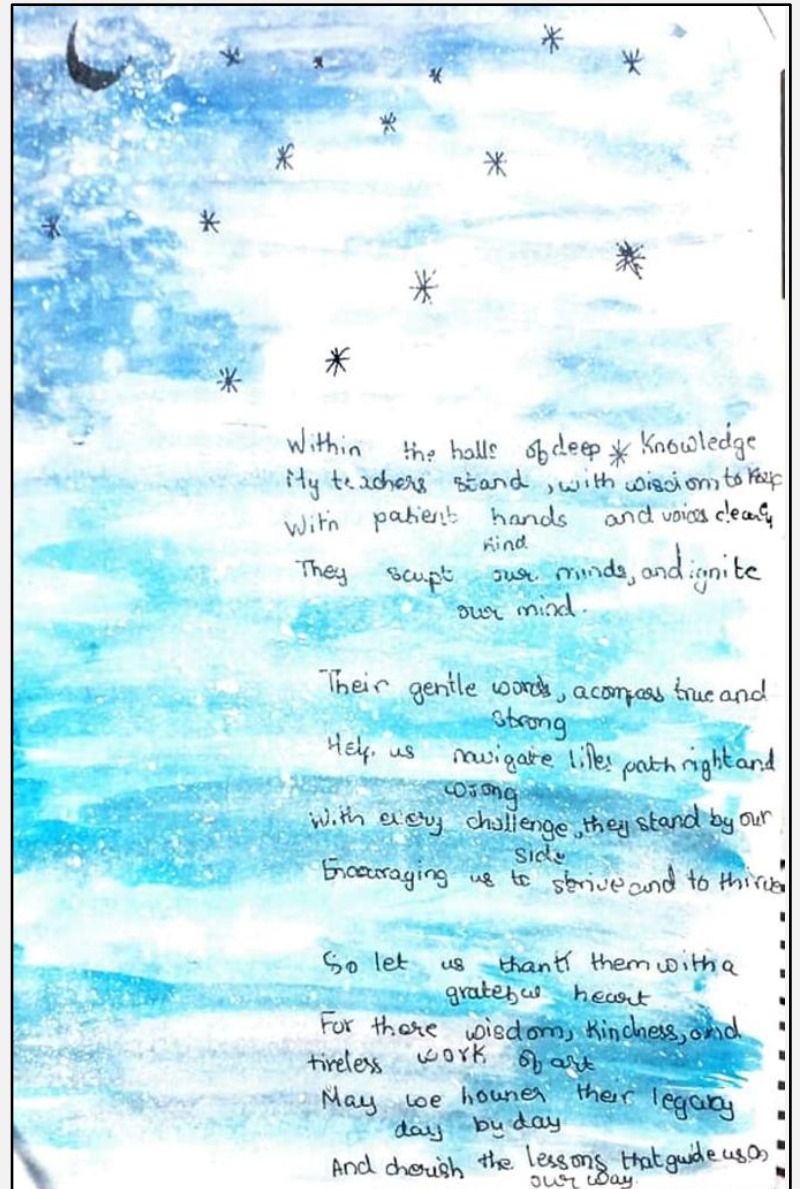 Within the halls of deep knowledge
My teachers stand, with wisdom to keep
With patient hands and voices clearly
kind
They sculpt our minds, and ignite
our mind.
Their gentle words, a compass true and
strong
Help us navigate life's path right and
wrong
With every challenge, they stand by our
side
Encouraging us to strive and to thrive
So let us thank them with a
grateful heart
For there wisdom, kindness, and
tireless work of art
May we houner their legacy
day by day
And cherish the lessons that guide us on
our way.